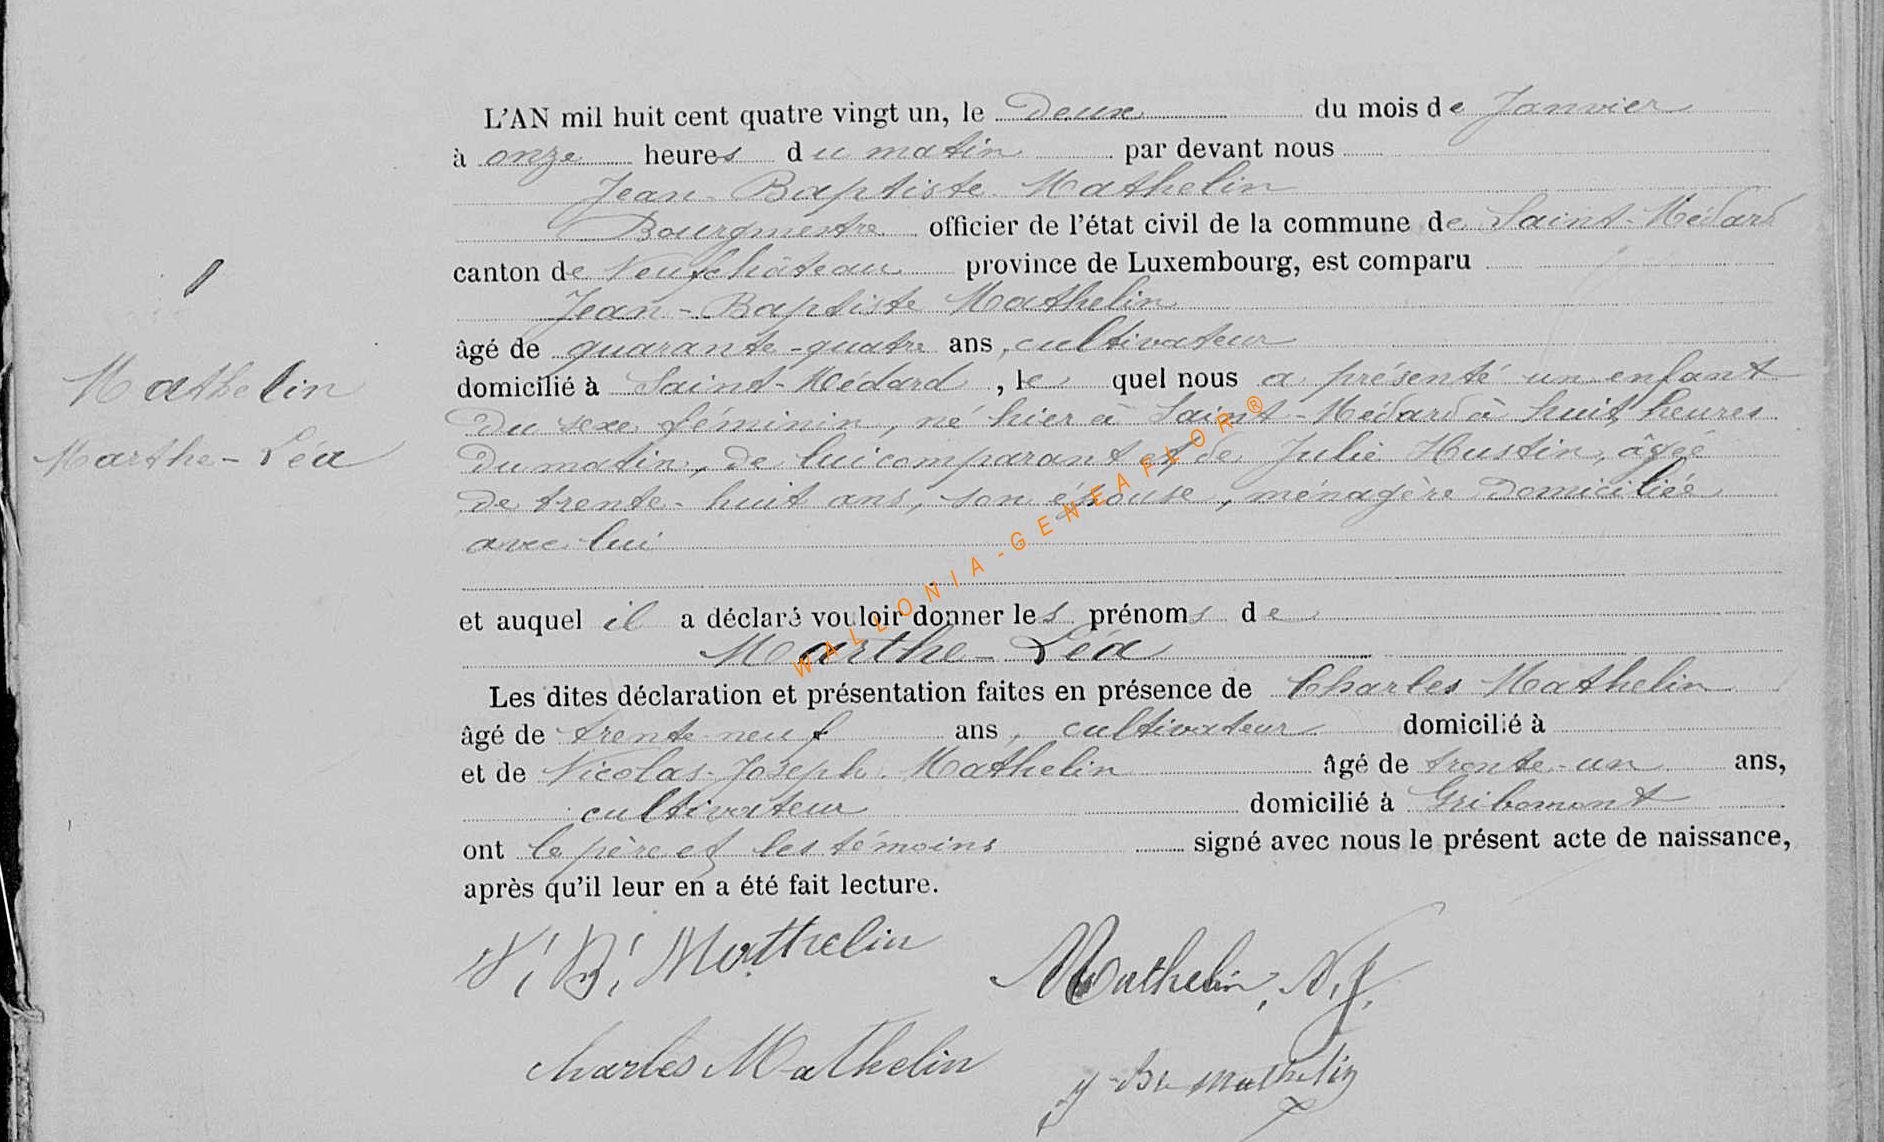 L'AN mil huit cent quatre vingt un, le Deux du mois de Janvier
à onze heures du matin par devant nous
Jean-Baptiste Mathelin
Bourgmestre officier de l'état civil de la commune de Saint-Médard
canton de Neufchâteau province de Luxembourg, est comparu
Jean-Baptiste Mathelin
âgé de quarante-quatre ans, cultivateur
domicilié à Saint-Médard, lequel nous a présenté un enfant
Du sexe féminin, né hier à Saint-Médard à huit heures
Du matin, de lui comparant et de Julie Hustin, âgée
De trente-huit ans, son épouse, ménagère Domiciliée
avec lui
et auquel il a déclaré vouloir donner les prénoms de
Marthe-Léa
Les dites déclaration et présentation faites en présence de Charles Mathelin
âgé de trente-neuf ans, cultivateur domicilié à
et de Nicolas-Joseph Mathelin âgé de trente-un ans,
cultivateur domicilié à Gribomont
ont le père et les témoins signé avec nous le présent acte de naissance,
après qu'il leur en a été fait lecture.
1
Mathelin
Marthe-Léa
J. B. Mathelin
Mathelin, N. J.
Charles Mathelin
J Bte Mathelin
WALLONIA-GENEAFLOR®